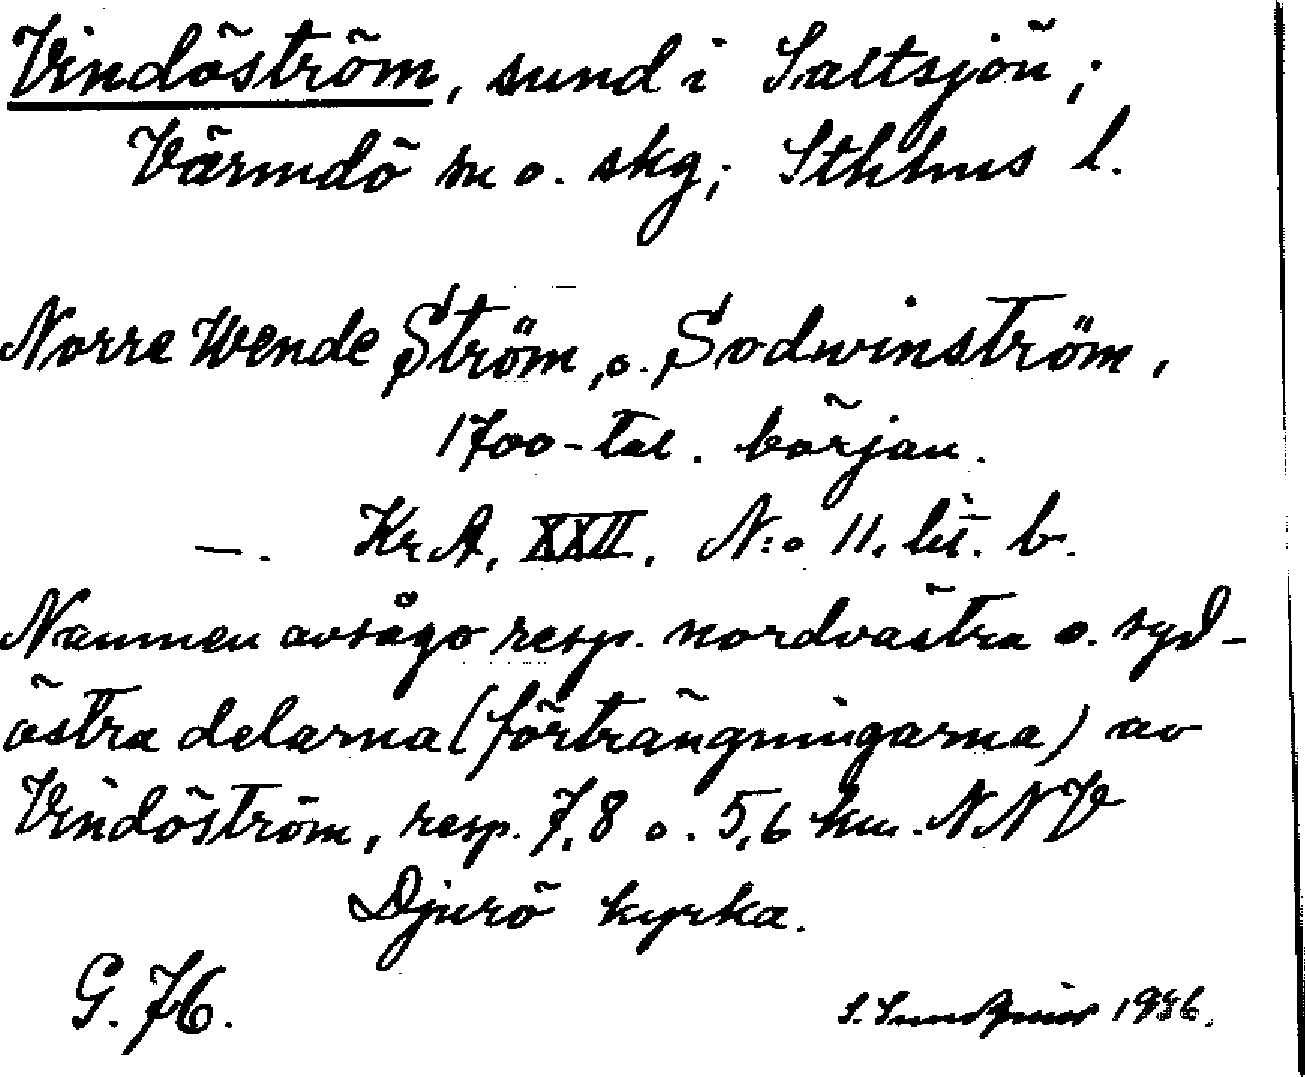 Vindöström, sund i Saltsjön;
Värmdö sn o. skg; Sthlms l.
Norre Wende Ström, o. Sodwinström,
1700-tal. början.
—. Kr.A. XXII. N:o 11. lit. b.
Namnen avsågo resp. nordvästra o. syd-
östra delarna (förträngningarna) av
Vindöström, resp. 7,8 o. 5,6 km. NNV
Djurö kyrka.
G. 76.
S. 1936.